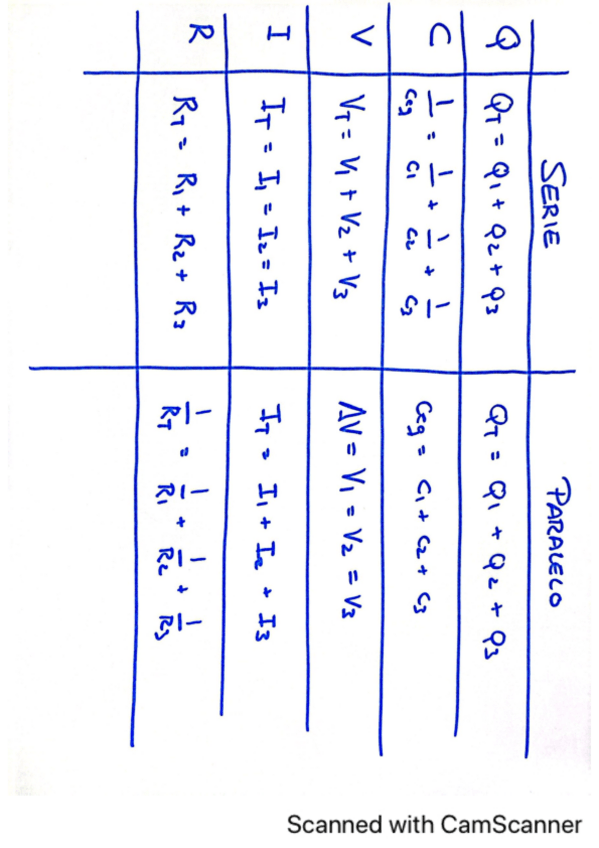 SERIE PARALELO
Q QT = Q1 + Q2 + Q3 QT = Q1 + Q2 + Q3
C 1/Ceq = 1/C1 + 1/C2 + 1/C3 Ceq = C1 + C2 + C3
V VT = V1 + V2 + V3 ΔV = V1 = V2 = V3
I IT = I1 = I2 = I3 IT = I1 + I2 + I3
R RT = R1 + R2 + R3 1/RT = 1/R1 + 1/R2 + 1/R3
Scanned with CamScanner